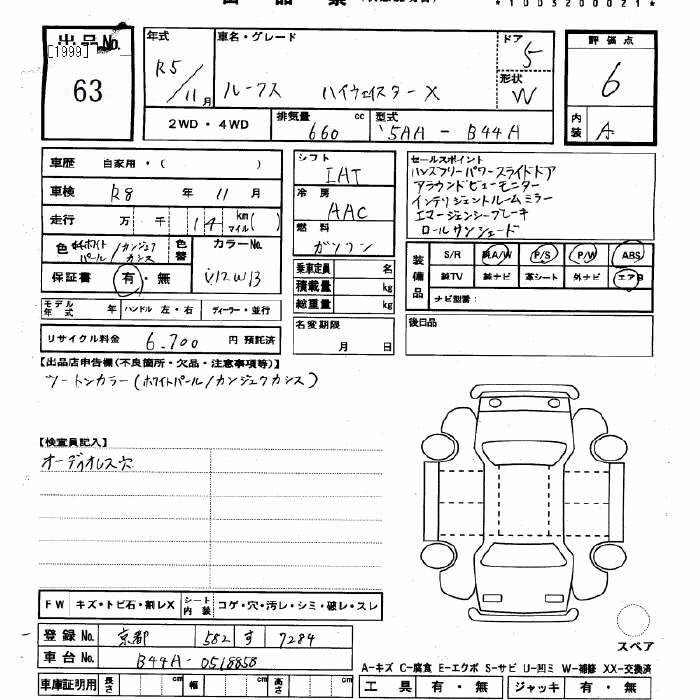 *1003200021*
出品No.
[1999]
63
年式
R5/11月
車名・グレード
ルークス ハイウェイスターX
ドア
5
形状
W
評価点
6
内装
A
2WD・4WD
排気量
660 cc
型式
5AA-B44A
車歴 自家用・( )
車検 R8 年 11 月
走行 万 千 14 km マイル( )
色 ホワイトパール/カンジュクカシス
色替
カラーNo.
保証書 有・無
モデル年式 年 ハンドル 左・右 ディーラー・並行
リサイクル料金 6,700 円 預託済
シフト
IAT
冷房
AAC
燃料
ガソリン
乗車定員 名
積載量 kg
総重量 kg
名変期限
月 日
セールスポイント
ハンズフリーパワースライドドア
アラウンドビューモニター
インテリジェントルームミラー
エマージェンシーブレーキ
ロールサンシェード
装備品
S/R 純A/W P/S P/W ABS
純TV 純ナビ 革シート 外ナビ エアB
ナビ型番:
後日品
【出品店申告欄(不良箇所・欠品・注意事項等)】
ツートンカラー(ホワイトパール/カンジュクカシス)
【検査員記入】
オーディオレス穴
FW キズ・トビ石・割レX シート内装 コゲ・穴・汚レ・シミ・破レ・スレ
登録No. 京都 582 す 7284
車台No. B44A-0518858
車庫証明用 長さ cm 幅 cm 高さ cm
スペア
A-キズ C-腐食 E-エクボ S-サビ U-凹ミ W-補修 XX-交換済
工具 有・無 ジャッキ 有・無